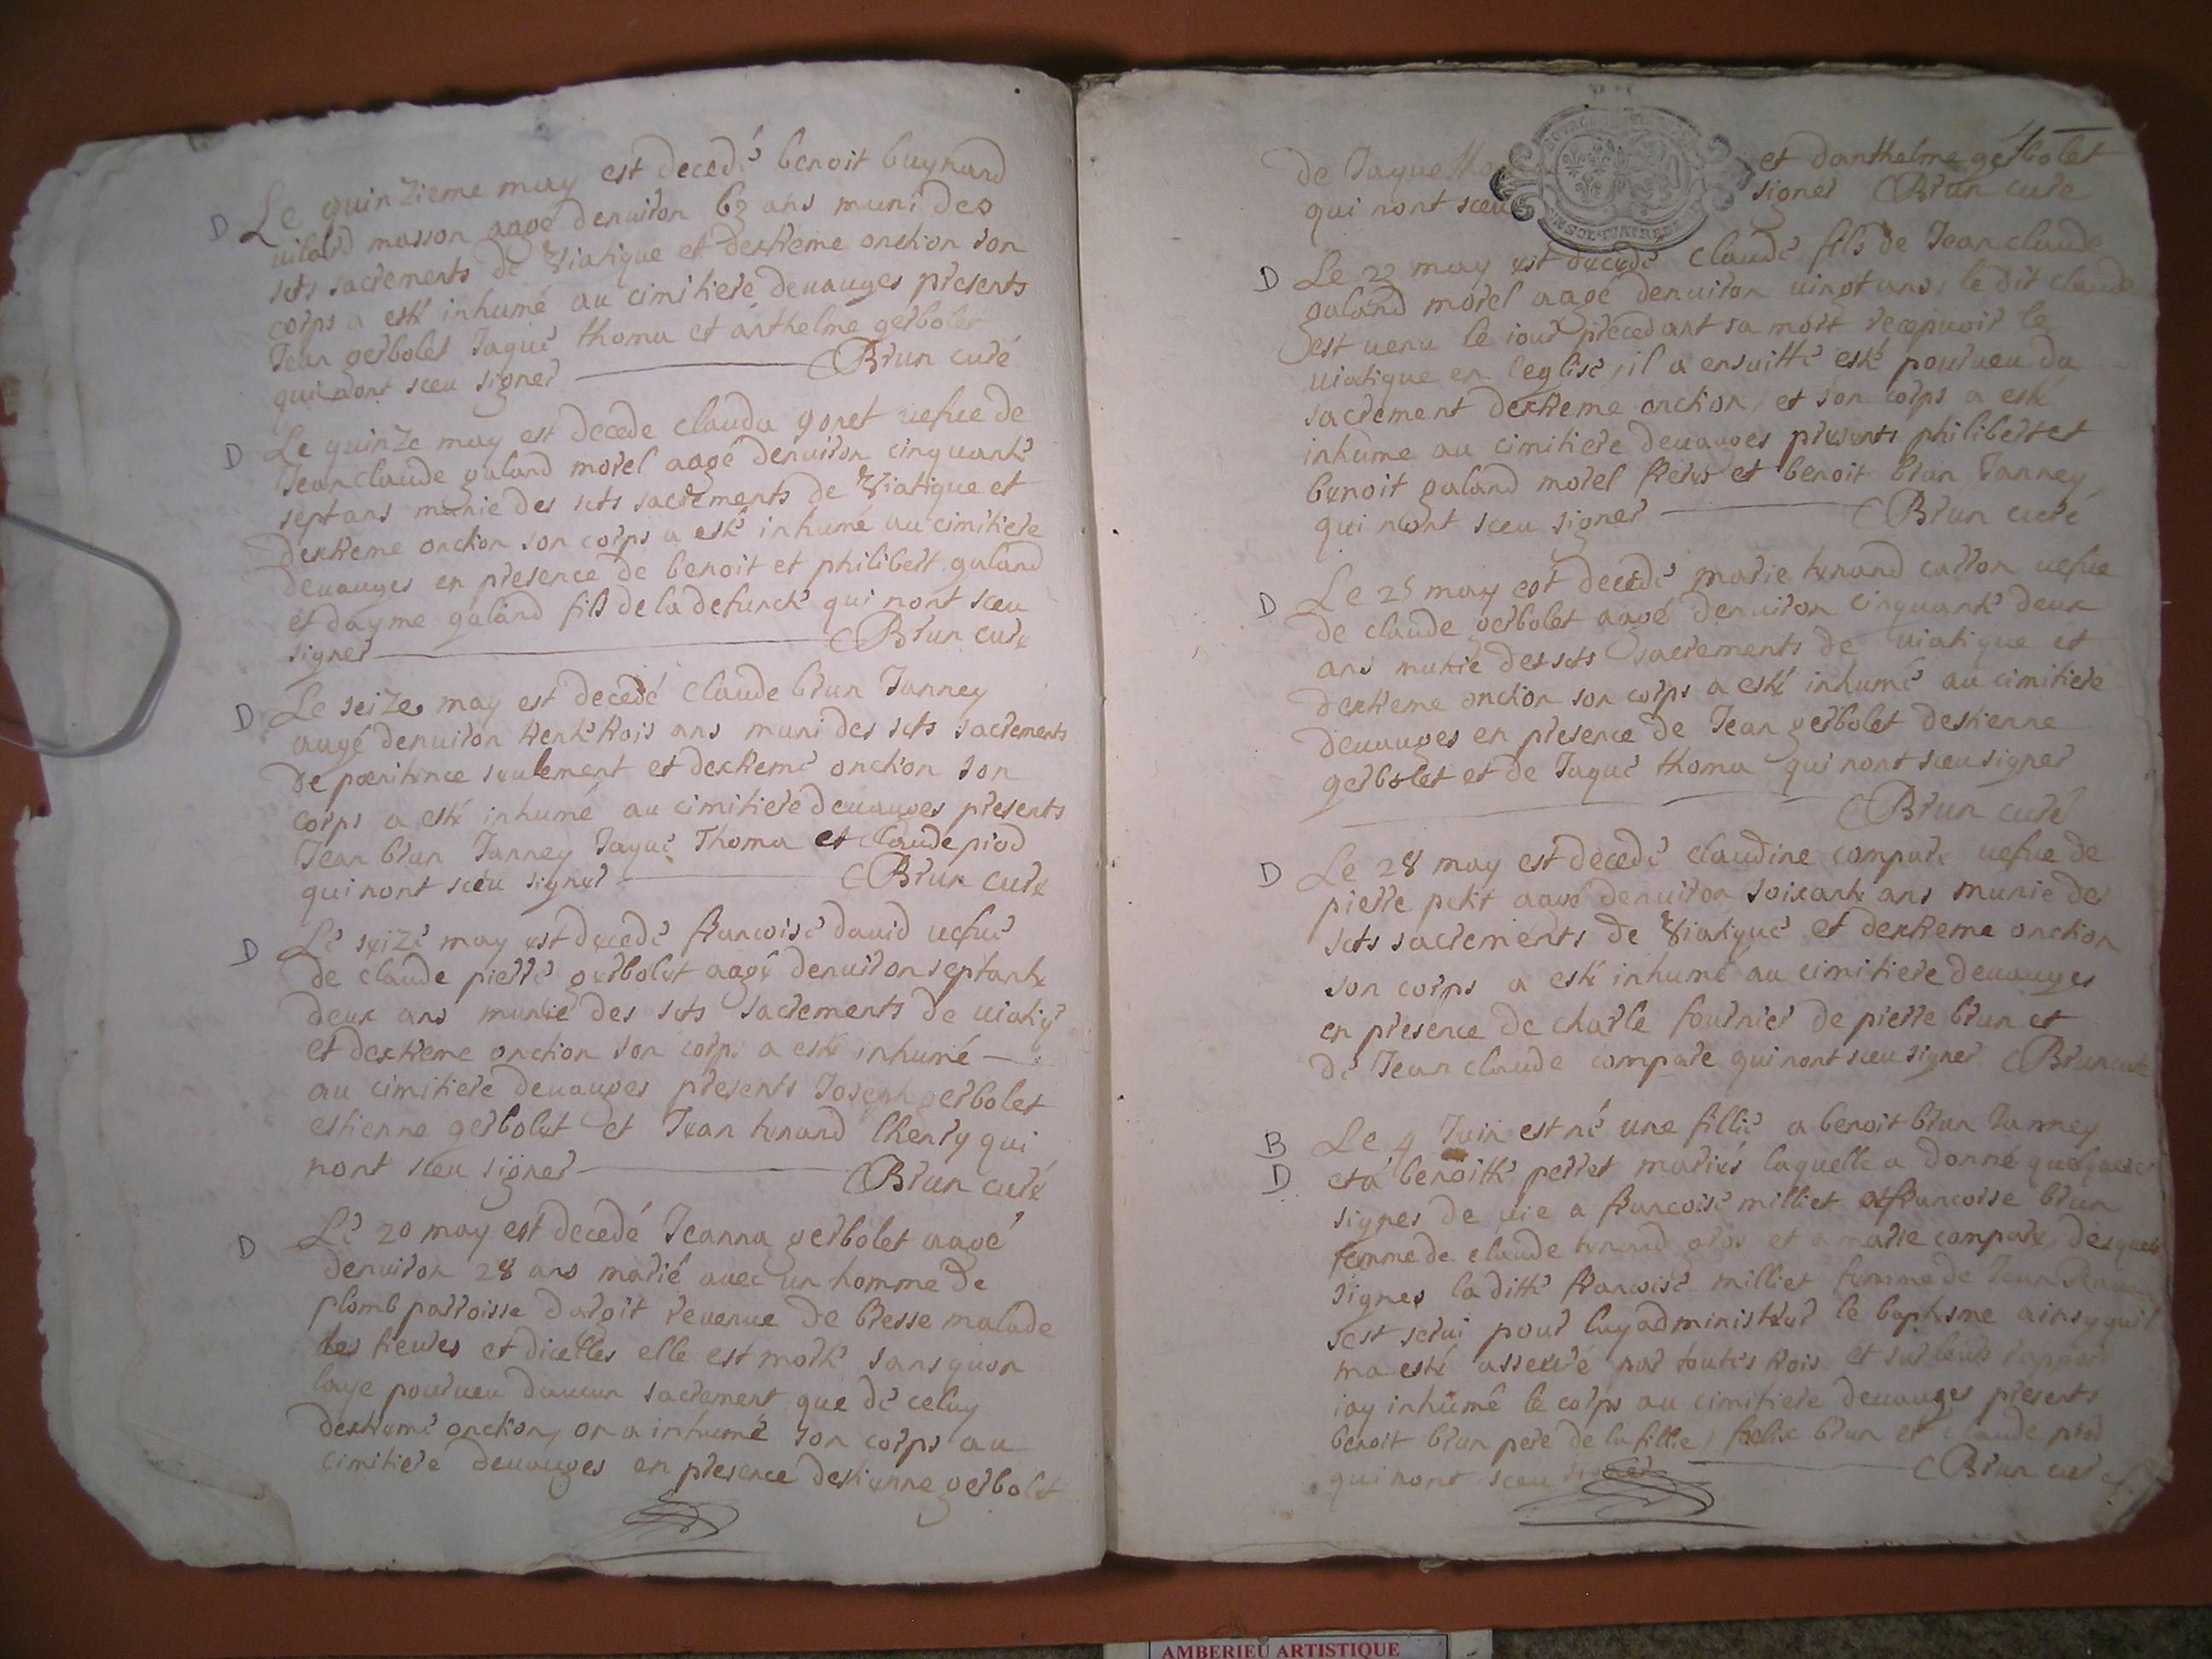 D Le quinzieme may est decedé benoit buynand
uilard masson aagé denuiron 63 ans muni des
scts sacrements de Viatique et dextreme onction son
corps a esté inhumé au cimitiere deuauges presents
Jean gerbolet Jaque thoma et anthelme gerbolet
qui nont sceu signer Brun curé
D Le quinze may est decede clauda goret uefue de
Jean claude galand morel aagé denuiron cinquante
sept ans munie des scts sacrements de Viatique et
dextreme onction son corps a esté inhumé au cimitiere
deuauges en presence de benoit et philibert galand
et dayme galand fils de la defuncte qui nont sceu
signer Brun cure
D Le seize may est decedé Claude brun Janney
aagé denuiron trente trois ans muni des scts sacrements
de pœnitence seulement et dextreme onction son
corps a esté inhumé au cimitiere deuauges presents
Jean brun Janney Jaque Thoma et Claude piod
qui nont sceu signer Brun cure
D Le seize may est decedé francoise dauid uefue
de claude pierre gerbolet aagé denuiron septante
deux ans munie des scts sacrements de uiatiq
et dextreme onction son corps a esté inhumé
au cimitiere deuauges presents Joseph gerbolet
estienne gerbolet et Jean tenand lhenry qui
nont sceu signer Brun curé
D Le 20 may est decedé Jeanna gerbolet aagé
denuiron 28 ans marié auec un homme de
plomb parroisse dargit reuenue de bresse malade
des fieures et dicelles elle est morte sans quon
laye pourueu daucun sacrement que de celuy
dextreme onction, on a inhumé son corps au
cimitiere deuauges en presence destienne gerbolet
de Jaque tho et danthelme gerbolet
qui nont sceu signer Brun cure
D Le 22 may est decedé claude fils de Jean claude
galand morel aagé denuiron uingt ans, le dit claude
est uenu le iour precedant sa mort recepuoir le
uiatique en leglise, il a ensuitte esté pourueu du
sacrement dextreme onction, et son corps a esté
inhume au cimitiere deuauges presents philibert et
benoit galand morel freres et benoit brun Janney
qui nont sceu signer Brun curé
D Le 25 may est decedé marie tenand carron uefue
de claude gerbolet aagé denuiron cinquante deux
ans munie des scts sacrements de uiatique et
dextreme onction son corps a esté inhumé au cimitiere
deuauges en presence de Jean gerbolet destienne
gerbolet et de Jaque thoma qui nont sceu signer
Brun curé
D Le 28 may est decedé claudine compare uefue de
pierre petit aagé denuiron soixante ans munie des
scts sacrements de Viatique et dextreme onction
son corps a esté inhumé au cimitiere deuauges
en presence de charle fournier de pierre brun et
de Jean claude compare qui nont sceu signer Brun cure
B Le 4 Juin est né une fillie a benoit brun Janney
D et a benoitte perret mariés laquelle a donné quelques
signes de uie a francoise milliet et francoise brun
femme de claude tenand gros et a marie compare, desquels
signes la ditte francoise milliet femme de Jean
sest serui pour luy administrer le baptesme ainsy quil
ma esté asseuré par toutes trois et sur leurs rapport
iay inhumé le corps au cimitiere deuauges presents
benoit brun pere de la fille, felix brun et claude piod
qui nont sceu signer Brun cure
AMBERIEU ARTISTIQUE